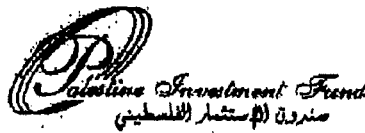 Palestine Investment Fund
صندوق الإستثمار الفلسطيني